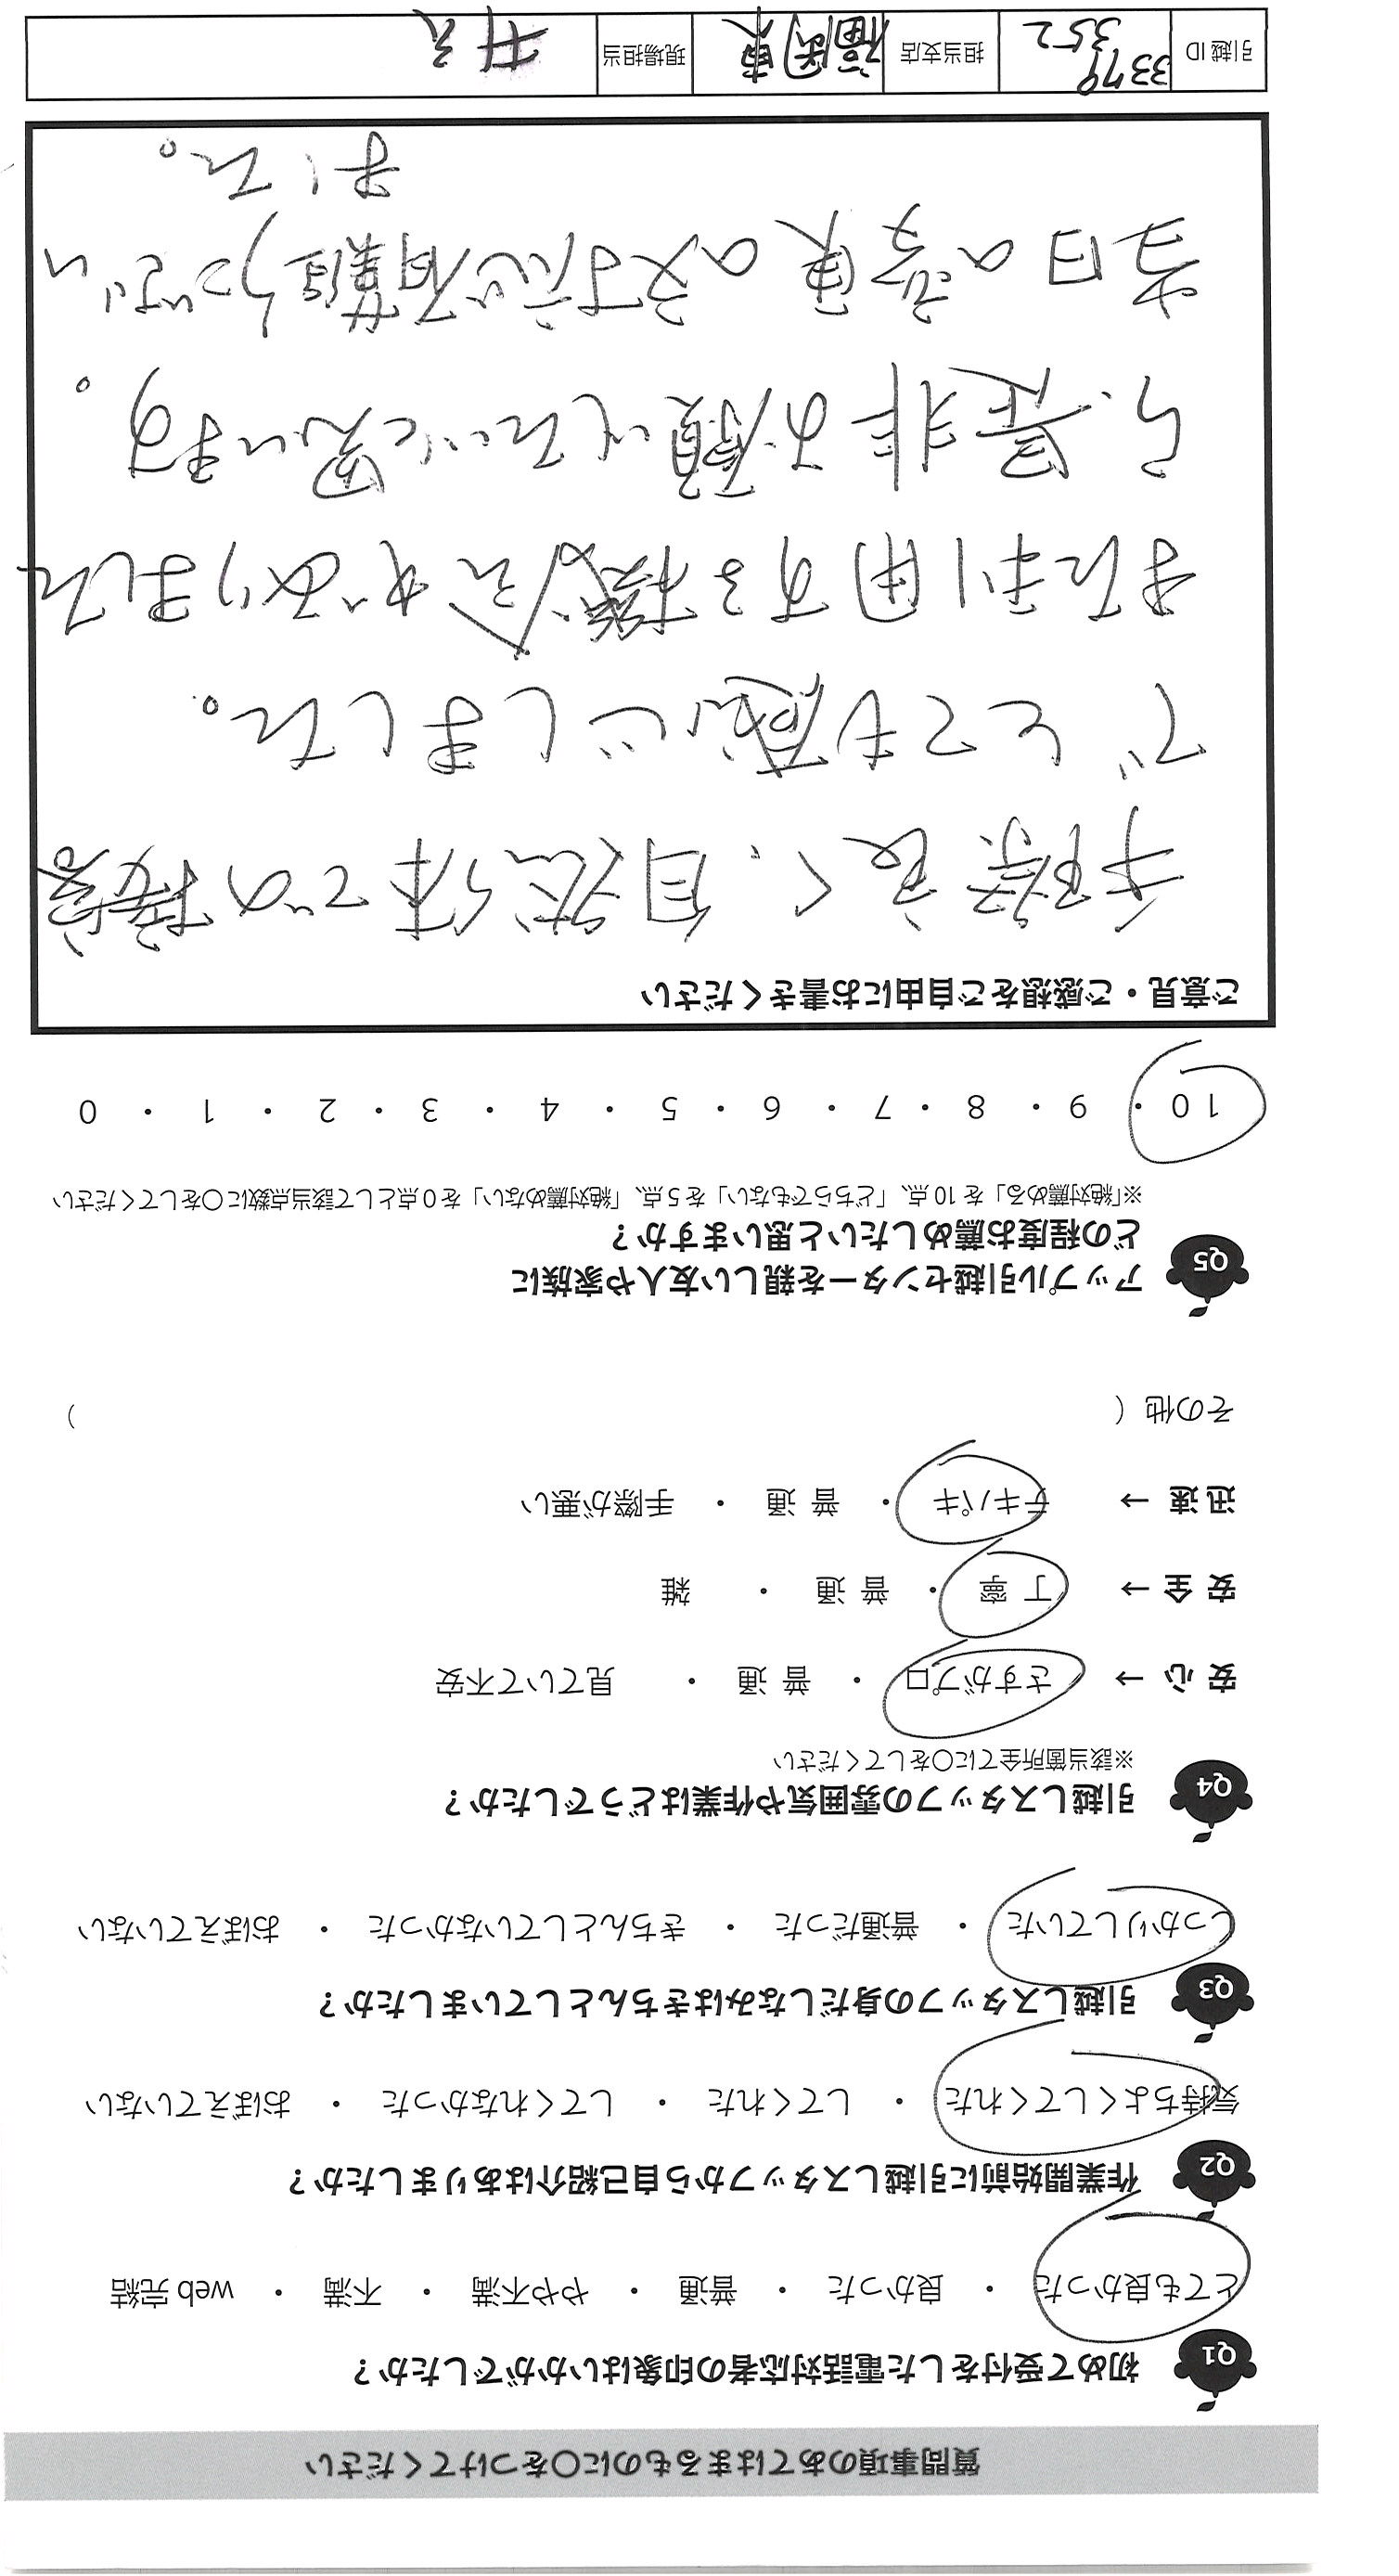 質問事項のあてはまるものに〇をつけてください
Q1 初めて受付をした電話対応者の印象はいかがでしたか？
とても良かった ・ 良かった ・ 普通 ・ やや不満 ・ 不満 ・ web 完結
Q2 作業開始前に引越しスタッフから自己紹介はありましたか？
気持ちよくしてくれた ・ してくれた ・ してくれなかった ・ おぼえていない
Q3 引越しスタッフの身だしなみはきちんとしていましたか？
しっかりしていた ・ 普通だった ・ きちんとしていなかった ・ おぼえていない
Q4 引越しスタッフの雰囲気や作業はどうでしたか？
※該当箇所全てに〇をしてください
安心 → さすがプロ ・ 普通 ・ 見ていて不安
安全 → 丁寧 ・ 普通 ・ 雑
迅速 → テキパキ ・ 普通 ・ 手際が悪い
その他（ ）
Q5 アップル引越センターを親しい友人や家族に
どの程度お薦めしたいと思いますか？
※「絶対薦める」を10点、「どちらでもない」を5点、「絶対薦めない」を0点として該当点数に〇をしてください
10 ・ 9 ・ 8 ・ 7 ・ 6 ・ 5 ・ 4 ・ 3 ・ 2 ・ 1 ・ 0
ご意見・ご感想をご自由にお書きください
手際良く、自然体での接客
でとても感心しました。
また利用する機会がありました
ら、是非お願いしたいと思います。
当日の変更の対応有難うござい
ました。
引越ID 3379 352 担当支店 福岡東 現場担当